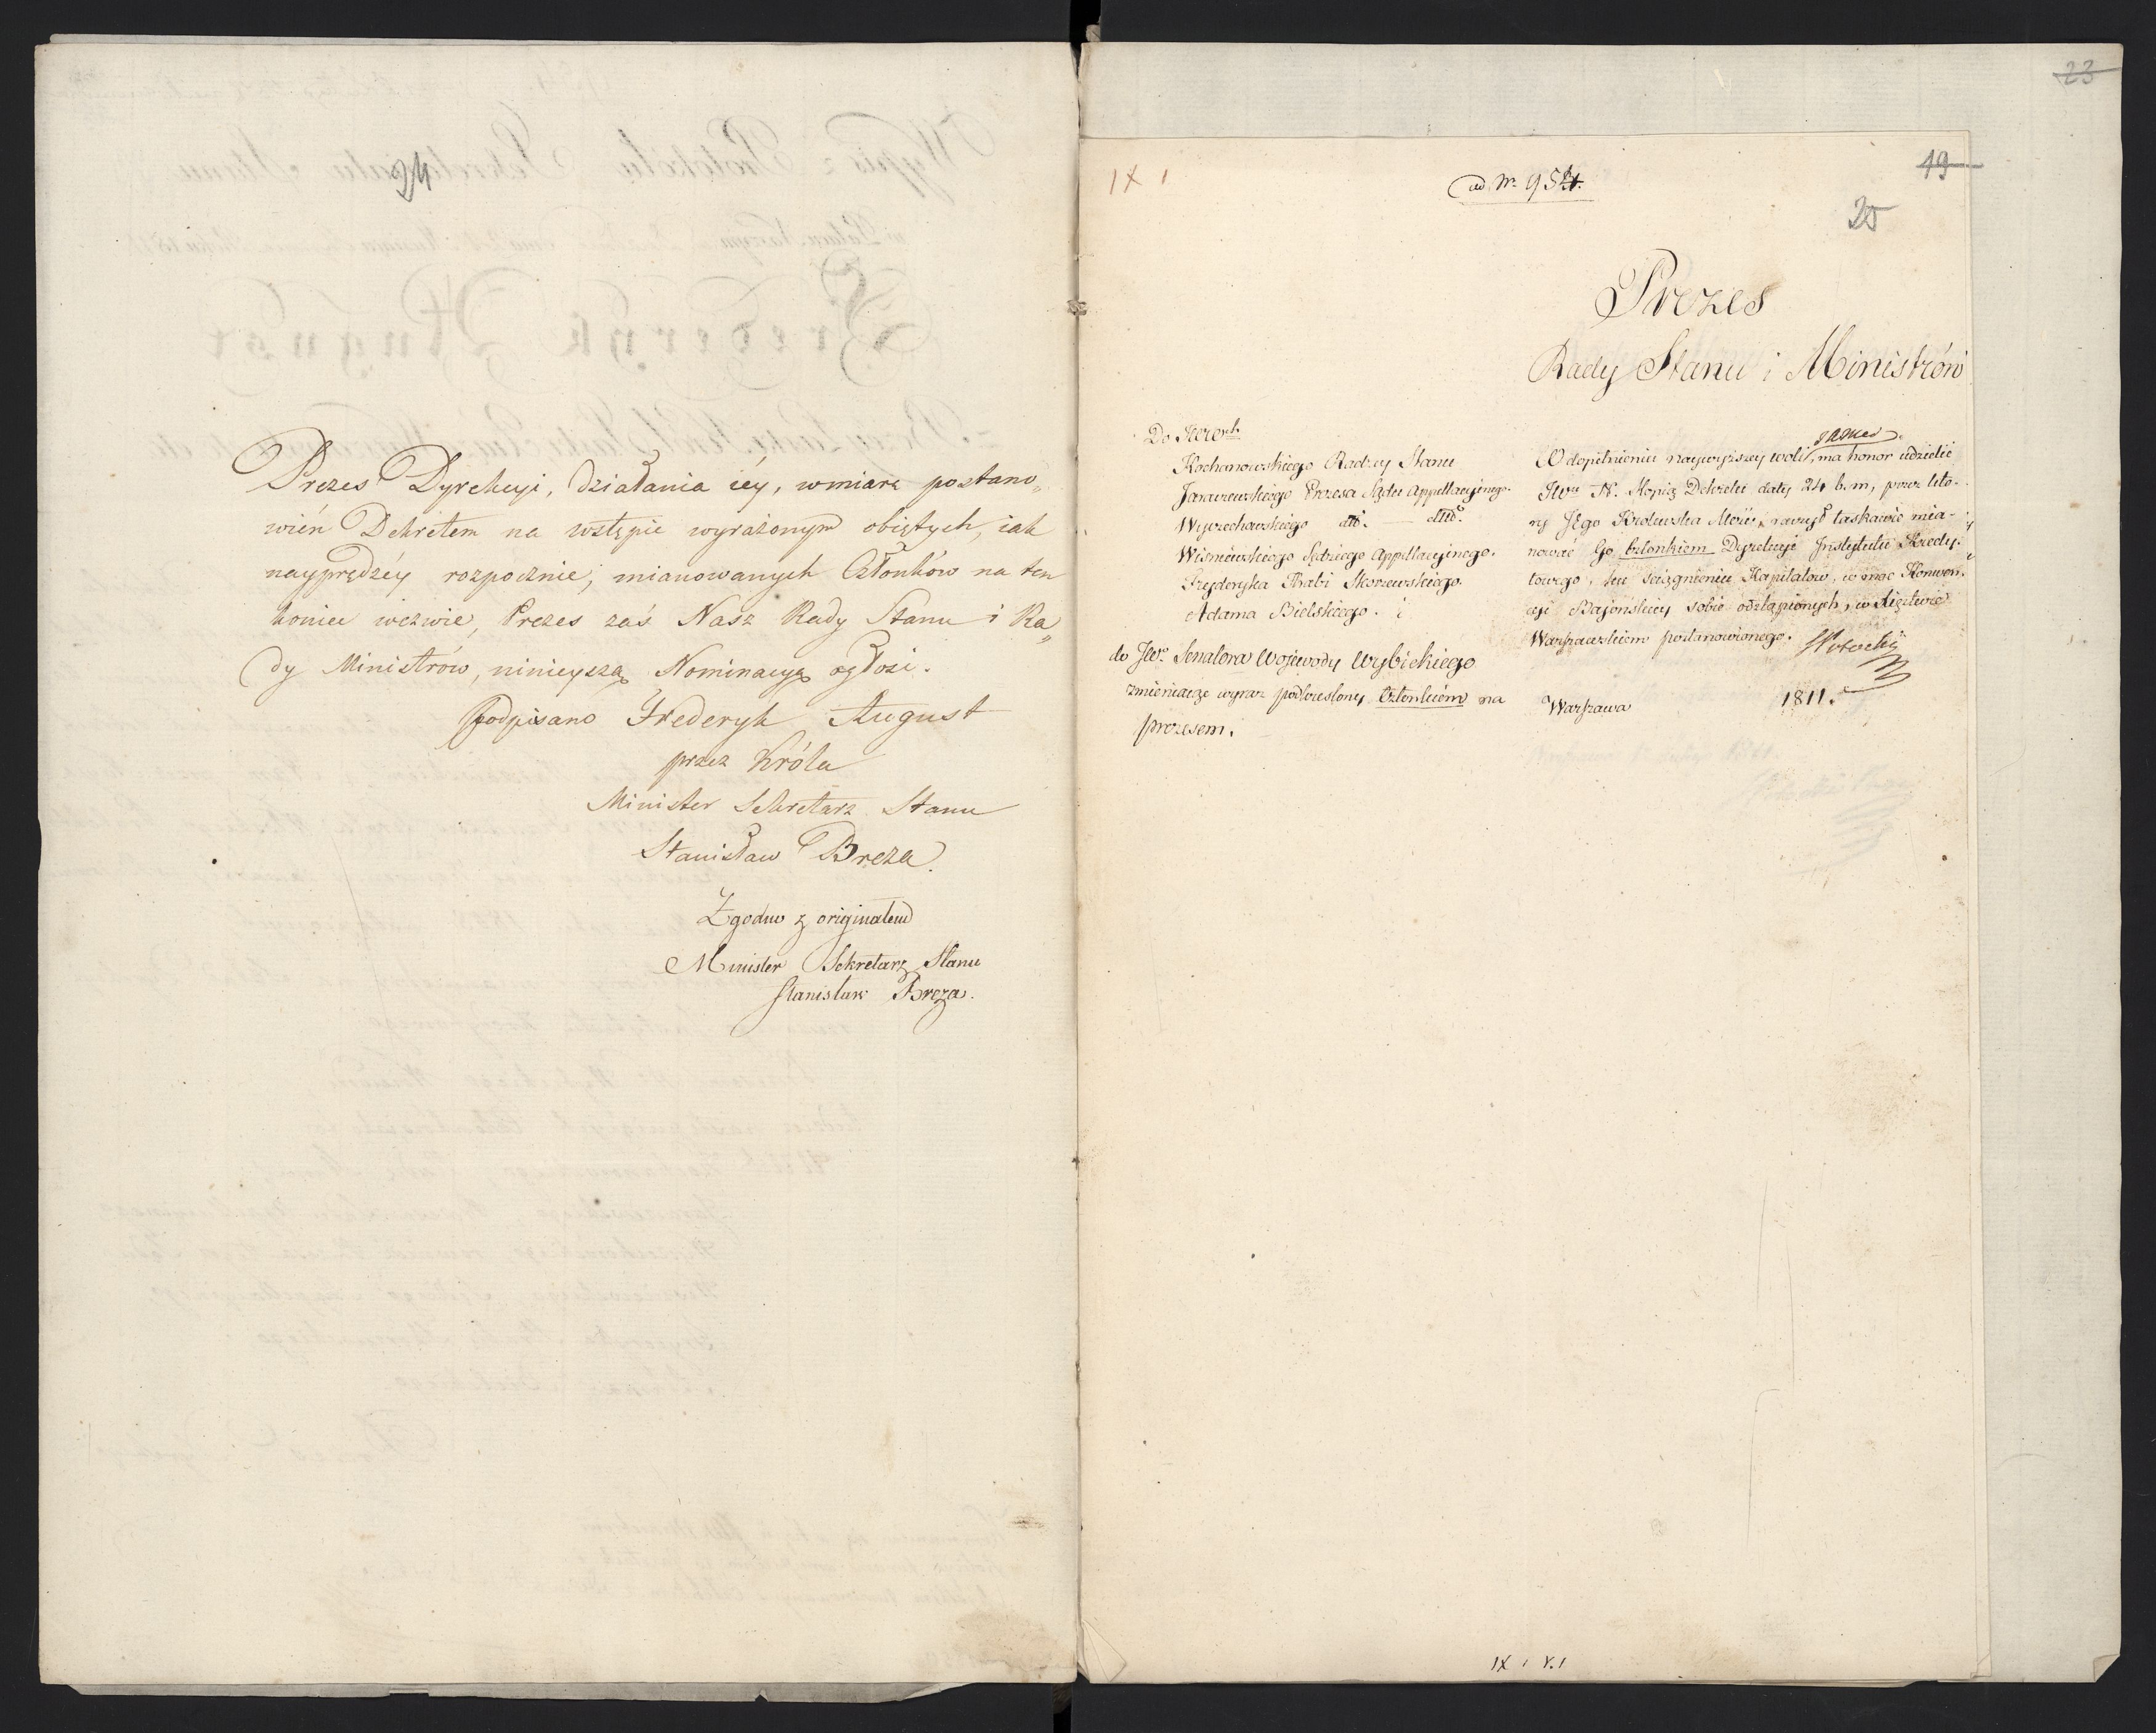 24
Prezes Dyrekcyi, działania iéy, wmiarę postano„
wień Dekretem na wstępie wyrażonym obiętych, iak
nayprędzéy rozpocznie; mianowanych Członków na ten
koniec wezwie, Prezes zaś Nasz Rady Stanu i Ra„
dy Ministrów, ninieyszą Nominacyą ogłosi.
Podpisano Frederyk August
przez Króla
Minister Sekretarz Stanu
Stanisław Breza.
Zgodno z originałem
Minister Sekretarz Stanu
Stanisław Breza.
23
IX 1
ad Nr 954.
19
25
Prezes
Rady Stanu i Ministrów
Do JWWch
Kochanowskiego Radzcy Stanu
Jaraczewskiego Prezesa Sądu Appellacyinego.
Wyczechowskiego dtto. dtto.
Wiśniewskiego Sędziego Appellacyinego.
Fryderyka Hrabi Skorzewskiego.
Adama Bielskiego. i
do JWo Senatora Wojewody Wybickiego
zmieniaiąc wyraz podkreślony Członkiem na
prezesem.
W dopełnieniu naywyższey woli, ma honor udzielić
JWu N. Kopią Dekretu daty 24 b. m, przez któ-
ry Jego Królewska Mość, raczył łaskawie mia-
nować Go Członkiem Dyrekcyi Instytutu Kredy-
towego, ku ściągnieniu Kapitałow, w moc Konwen-
cyi Bajońskiey sobie odstąpionych, w Xięstwie
Warszawskiem postanowionego.
Warszawa 1811.
IX 1 V.1